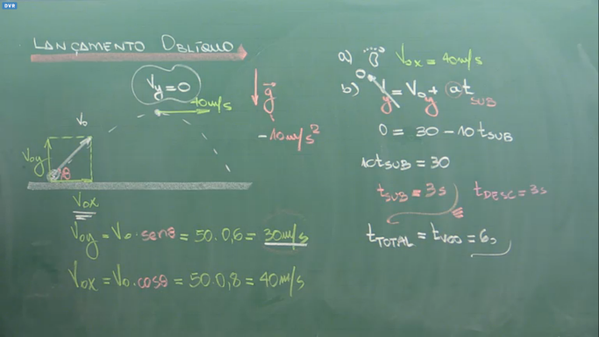 DVR
LANÇAMENTO OBLÍQUO
Vy=0
40m/s
g
-10m/s²
V₀
V₀y
θ
V₀x
V₀y = V₀·senθ = 50.0,6 = 30m/s
V₀x = V₀·cosθ = 50.0,8 = 40m/s
a) V₀x = 40m/s
0
b) Vy = V₀y + atsub
0 = 30 - 10tsub
10tsub = 30
tsub = 3s tDESC = 3s
tTOTAL = tVOO = 6s